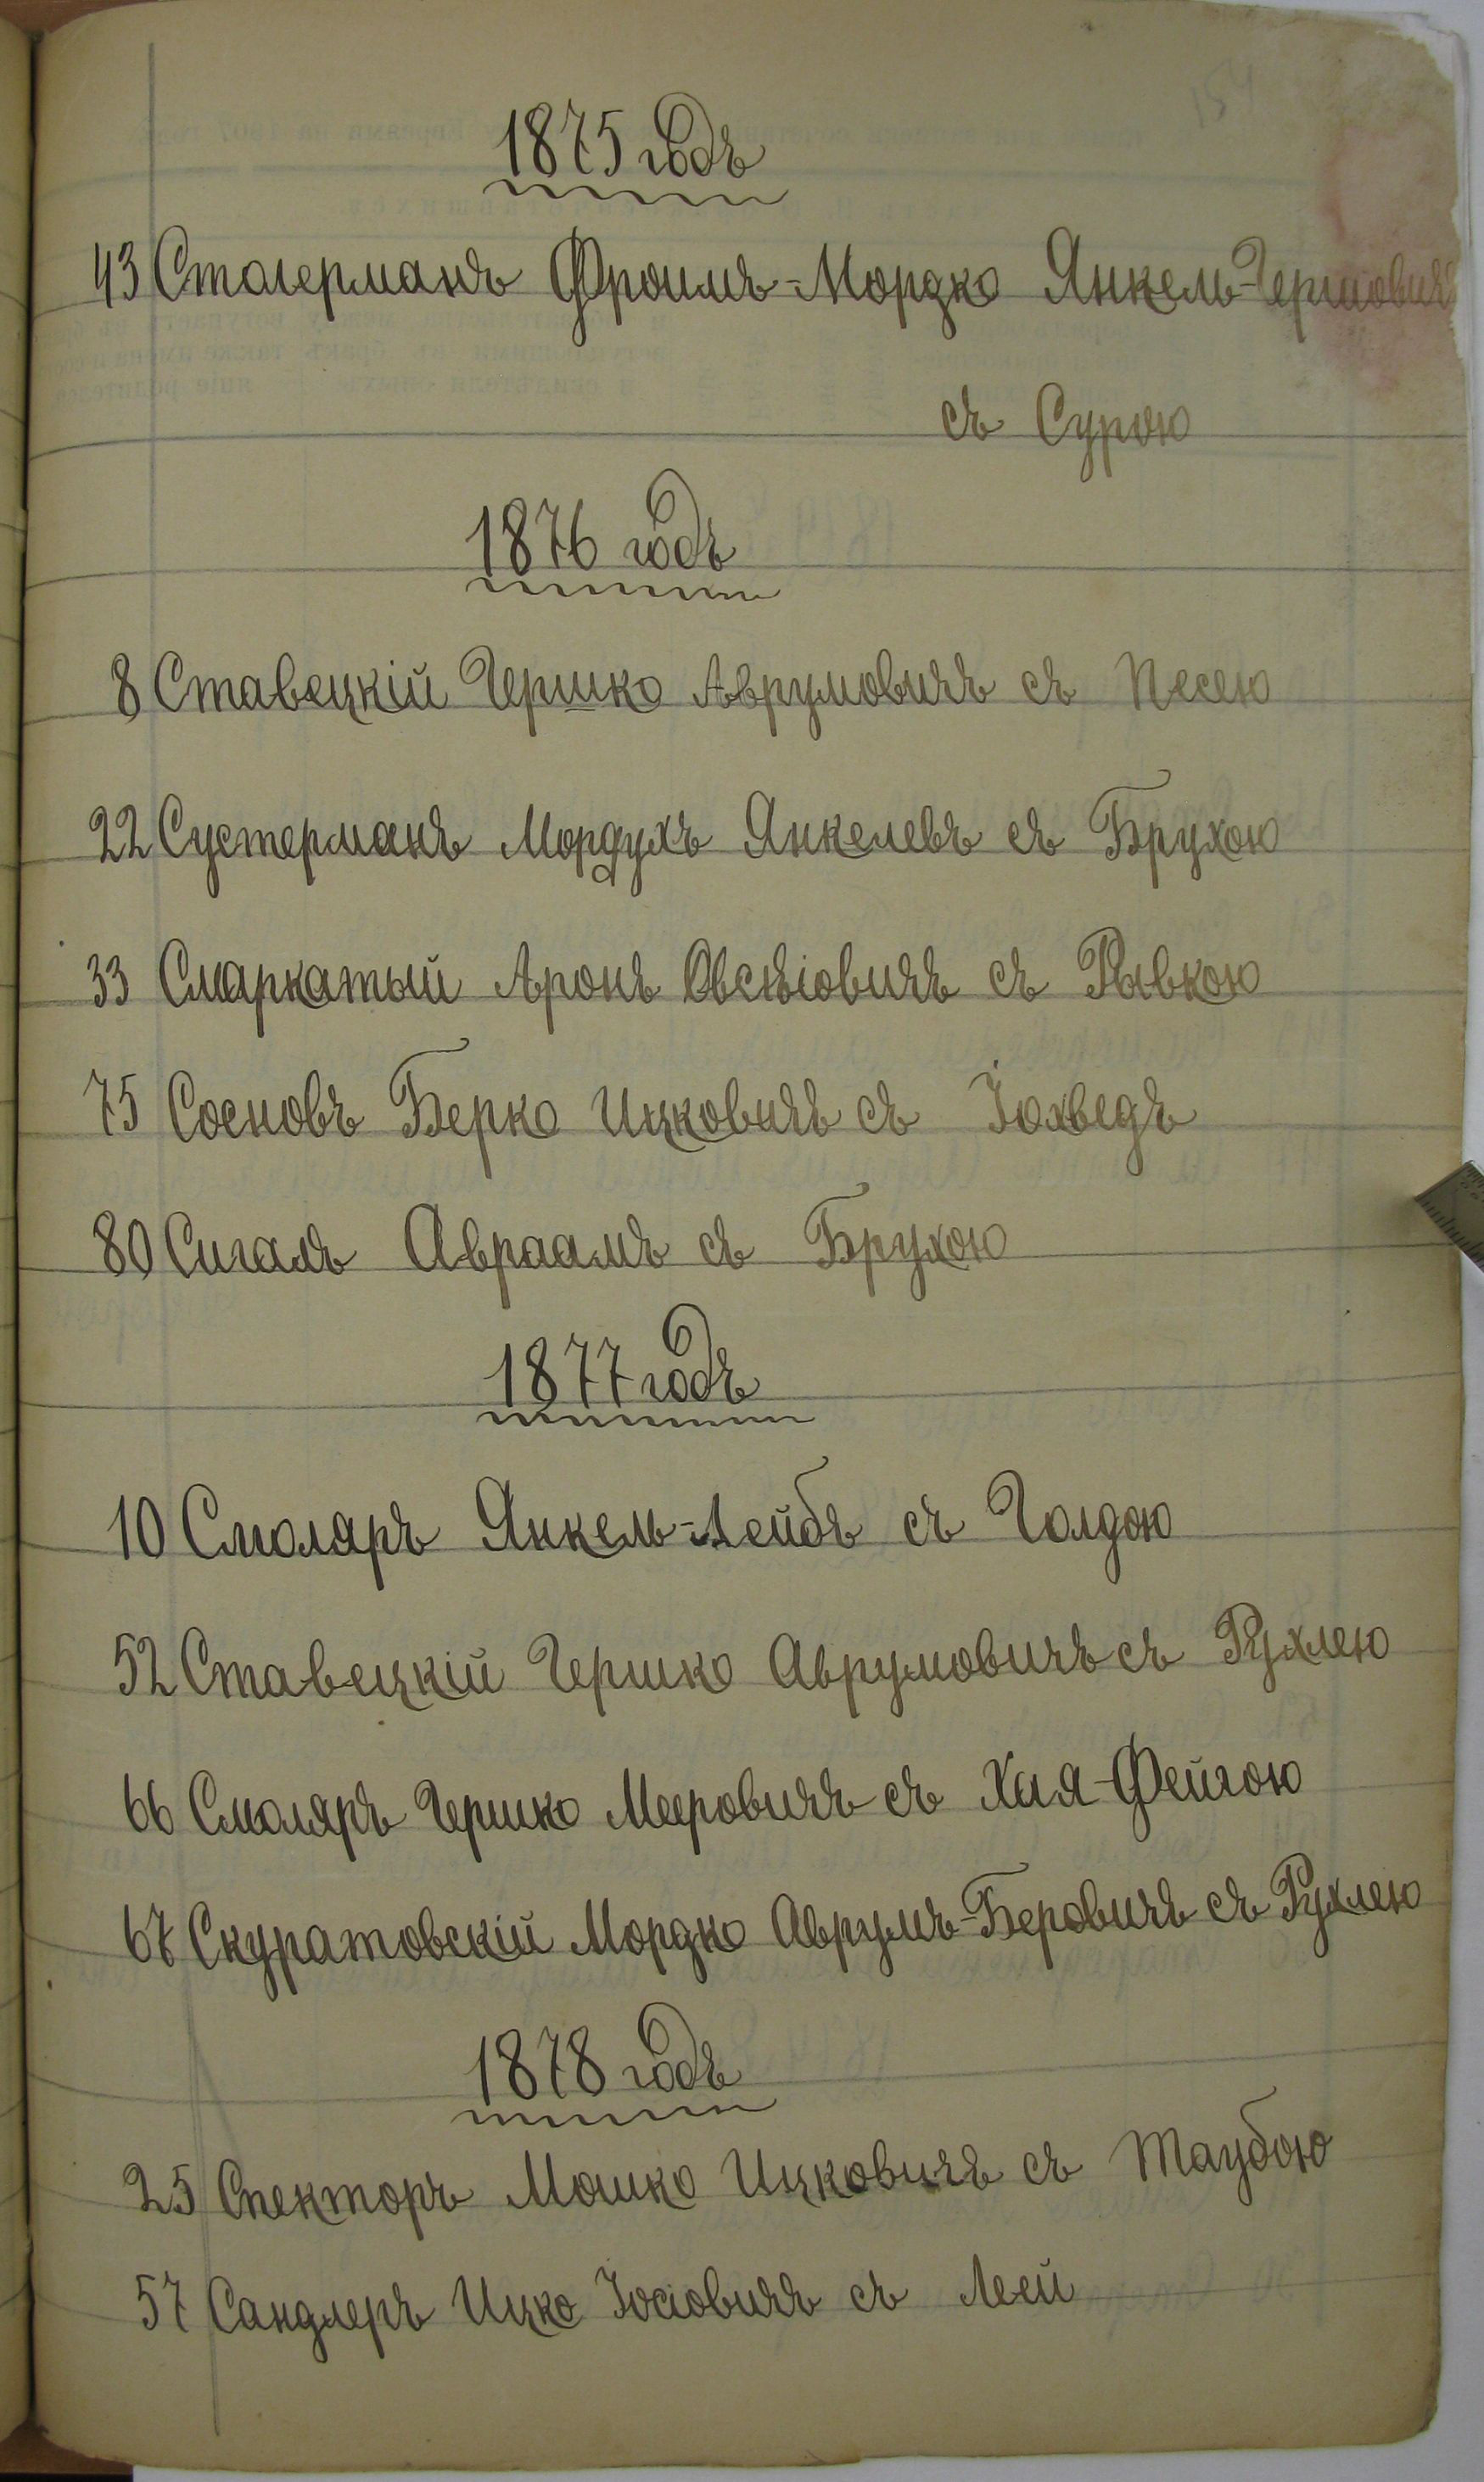 154
1875 годъ
43 Столерманъ Фроимъ-Мордко Янкель-Гершовичъ
съ Сурою
1876 годъ
8 Ставецкій Гершко Аврумовичъ съ Песею
22 Сустерманъ Мордухъ Янкелевъ съ Брухою
33 Смаркатый Аронъ Овсѣіовичъ съ Рывкою
75 Сосновъ Берко Ицковичъ съ Іохведъ
80 Сигалъ Авраамъ съ Брухою
1877 годъ
10 Смоляръ Янкель-Лейбъ съ Голдою
52 Ставецкій Гершко Аврумовичъ съ Рухлею
66 Смоляръ Гершко Мееровичъ съ Хая-Фейгою
67 Скуратовскій Мордко Аврумъ-Беровичъ съ Рухлею
1878 годъ
25 Спекторъ Мошко Ицковичъ съ Таубою
57 Сандлеръ Ицко Іосіовичъ съ Леей